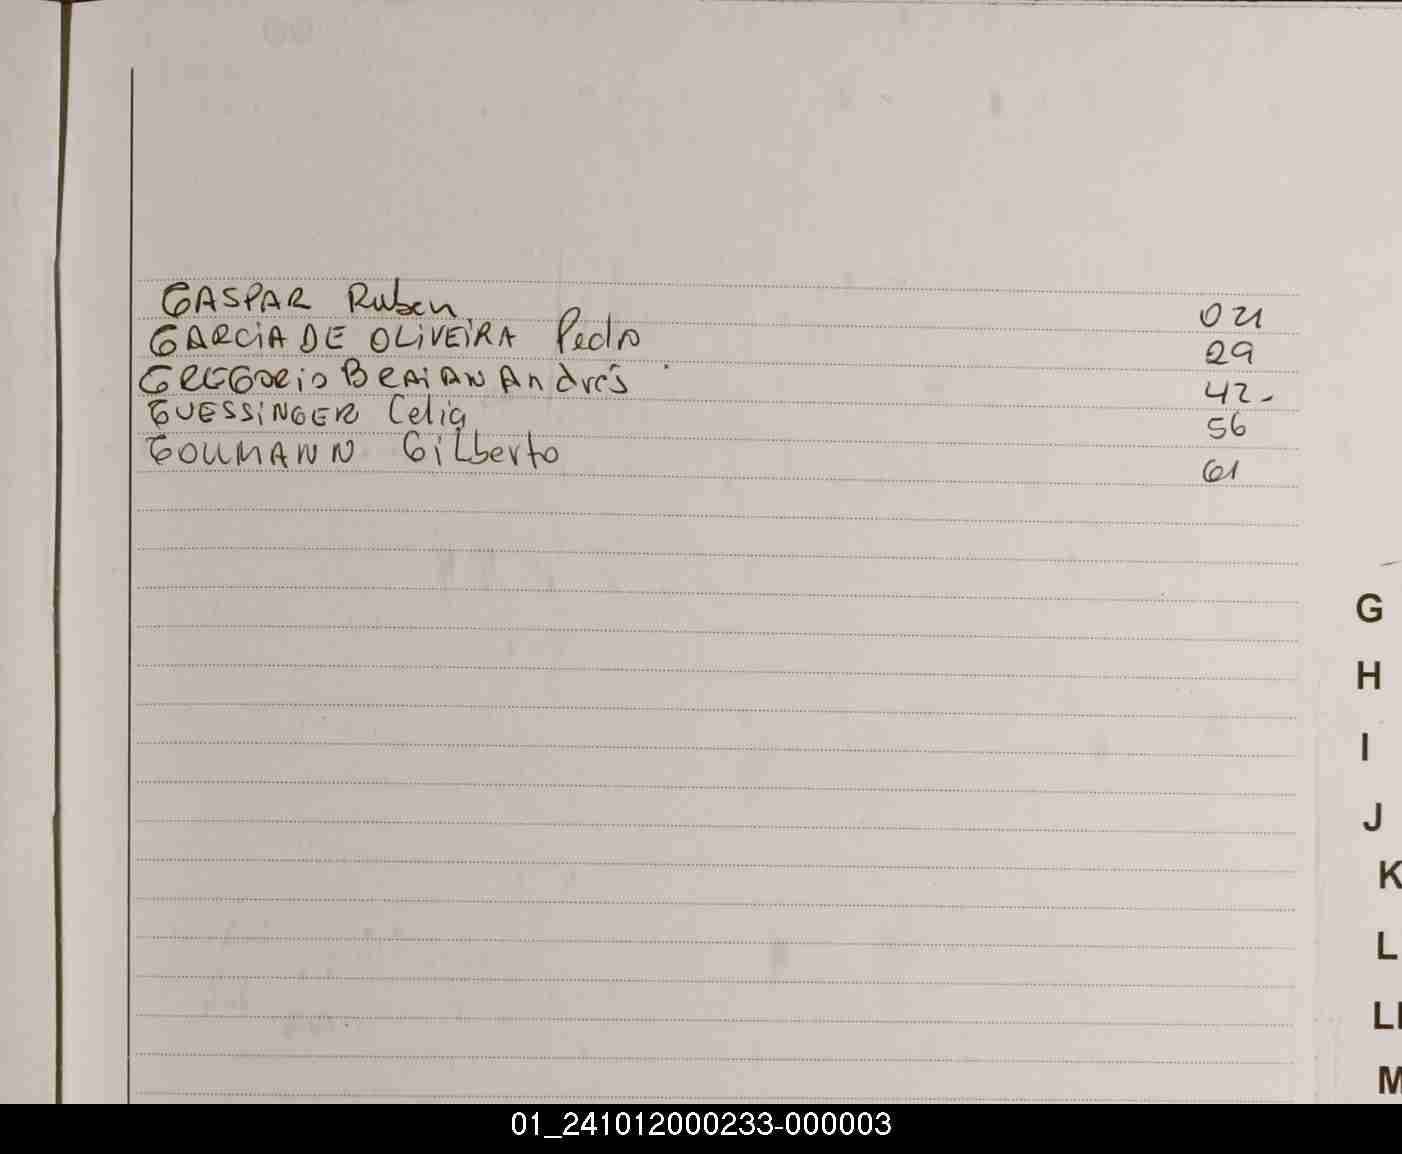 GASPAR Ruben 021
GARCIA DE OLIVEIRA Pedro 29
GREGORIO BRAIAN Andrés 42-
GUESSINGER Celia 56
GOLLMANN Gilberto 61
G
H
I
J
K
L
LL
M
01_241012000233-000003